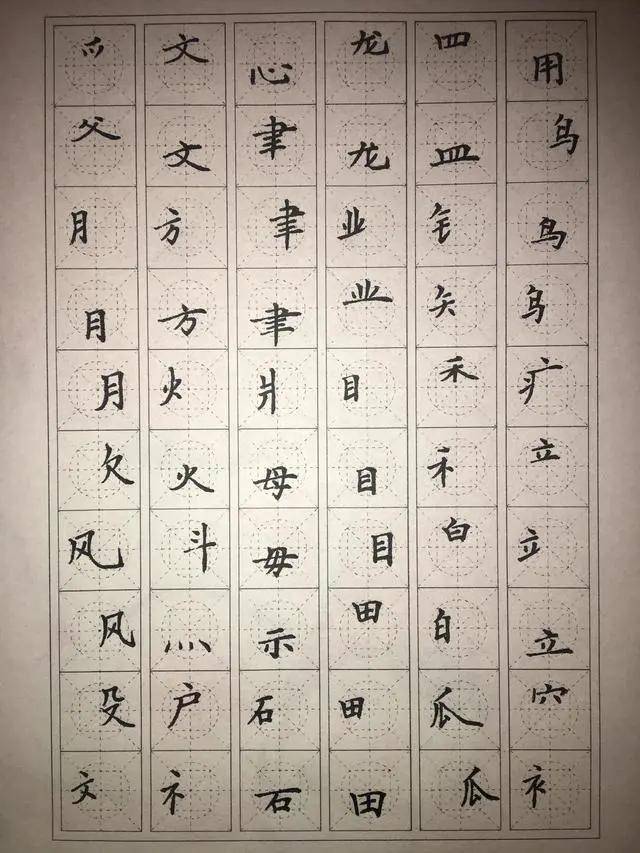 爫父月月月欠风风殳文
文文方方火火斗灬户礻
心聿聿聿爿母母示石石
龙龙业业目目目田田田
罒皿钅矢禾禾白白瓜瓜
用鸟鸟鸟疒立立立穴衤